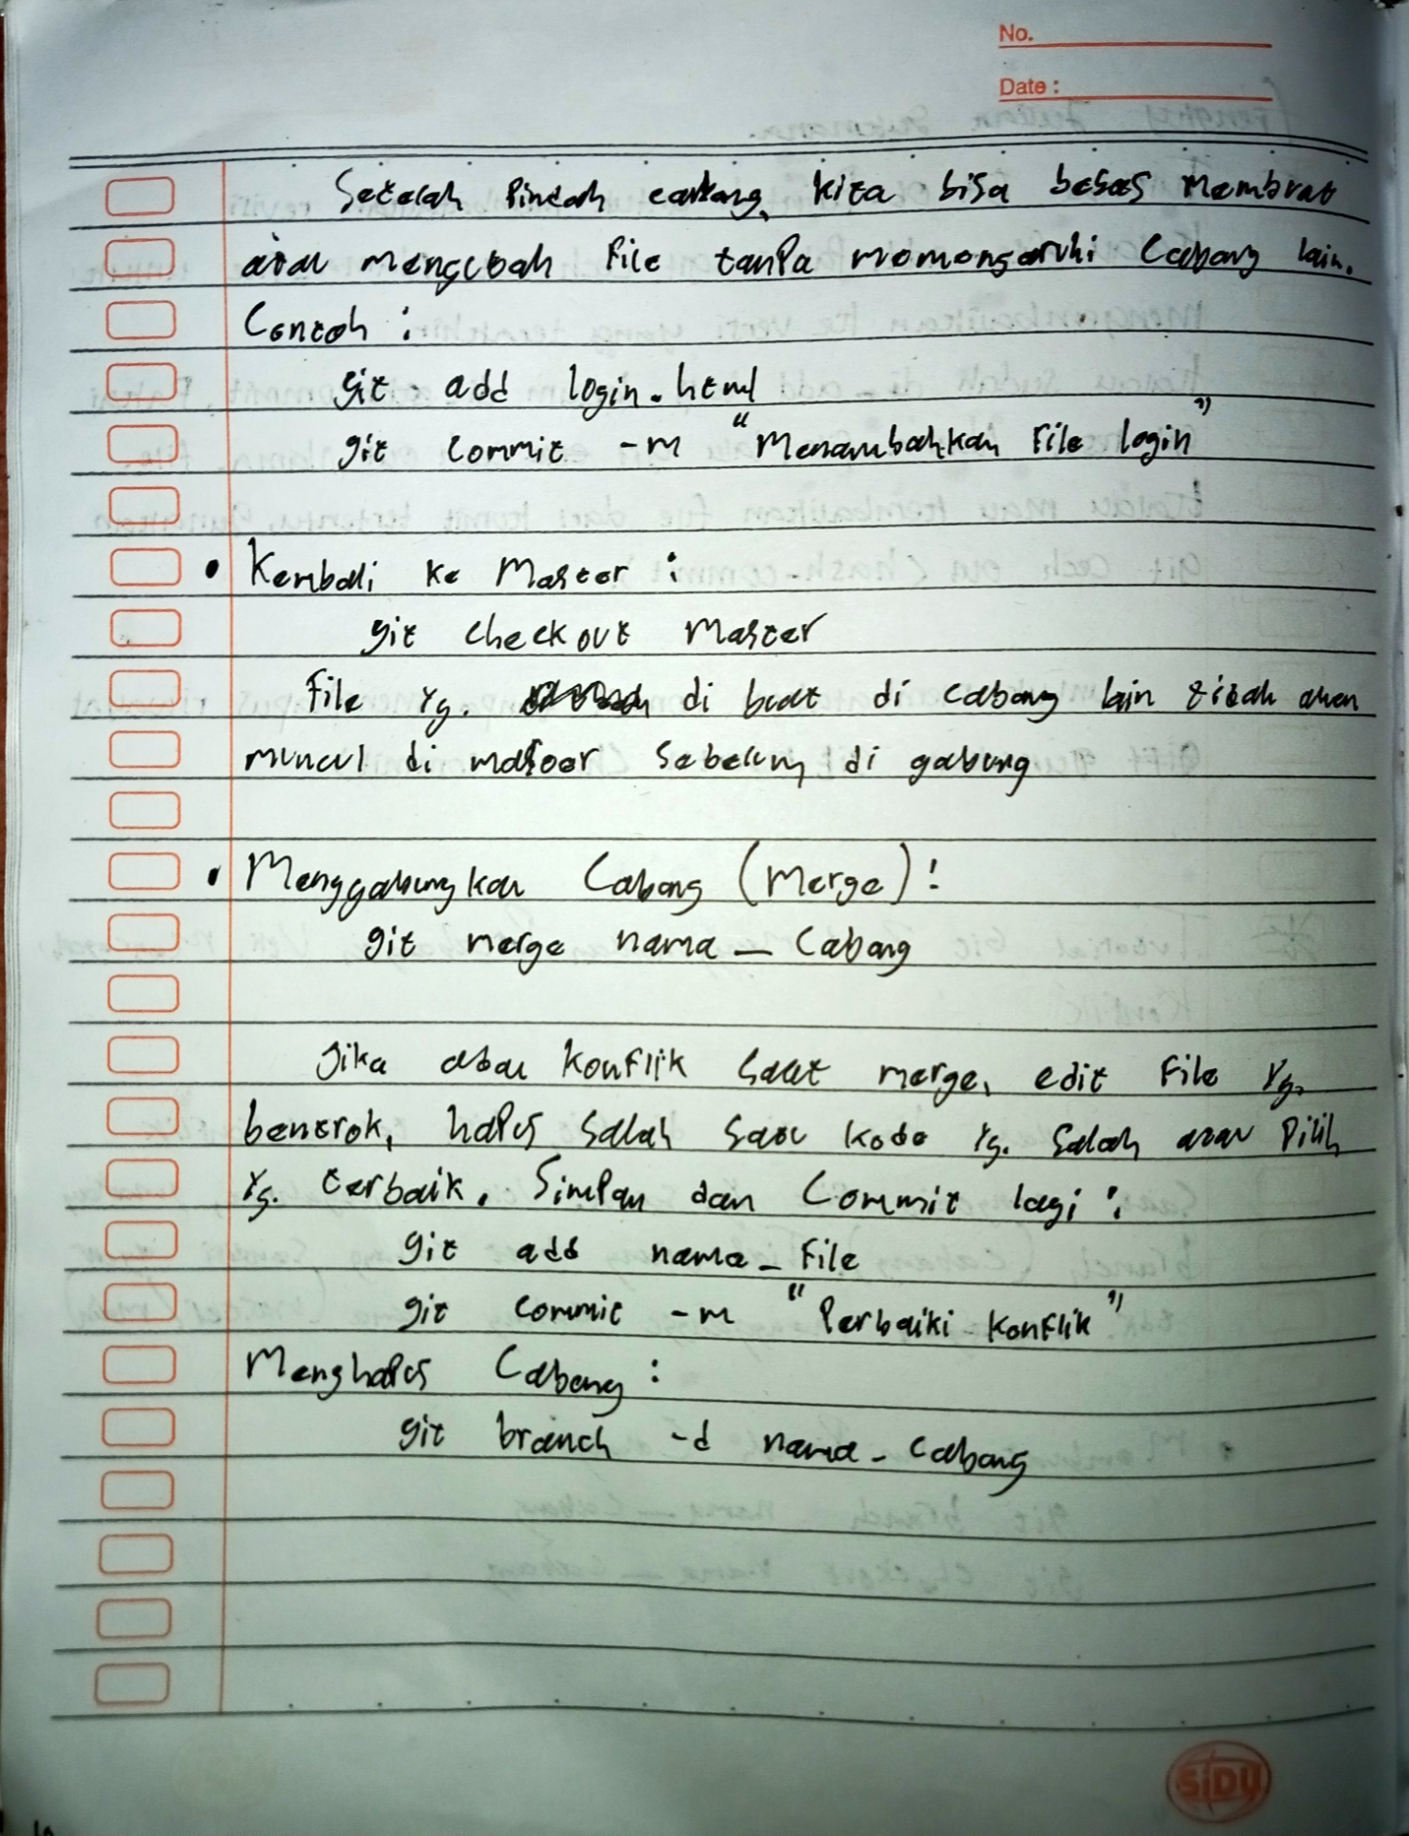 No.
Date :
Setelah Pindah cabang, kita bisa bebas membuat
atau mengubah File tanpa memengaruhi Cabang lain.
Contoh :
git add login.html
git commit -m "Menambahkan File login"
• Kembali ke Master :
git checkout Master
File yg. di buat di cabang lain tidak akan
muncul di master sebelum di gabung
• Menggabungkan Cabang (Merge) :
git merge nama_Cabang
Jika ada konflik saat merge, edit File yg.
bentrok, hapus salah satu kode yg. salah atau Pilih
yg. terbaik. Simpan dan Commit lagi :
git add nama_File
git commit -m "Perbaiki konflik"
Menghapus Cabang :
git branch -d nama_Cabang
SiDU